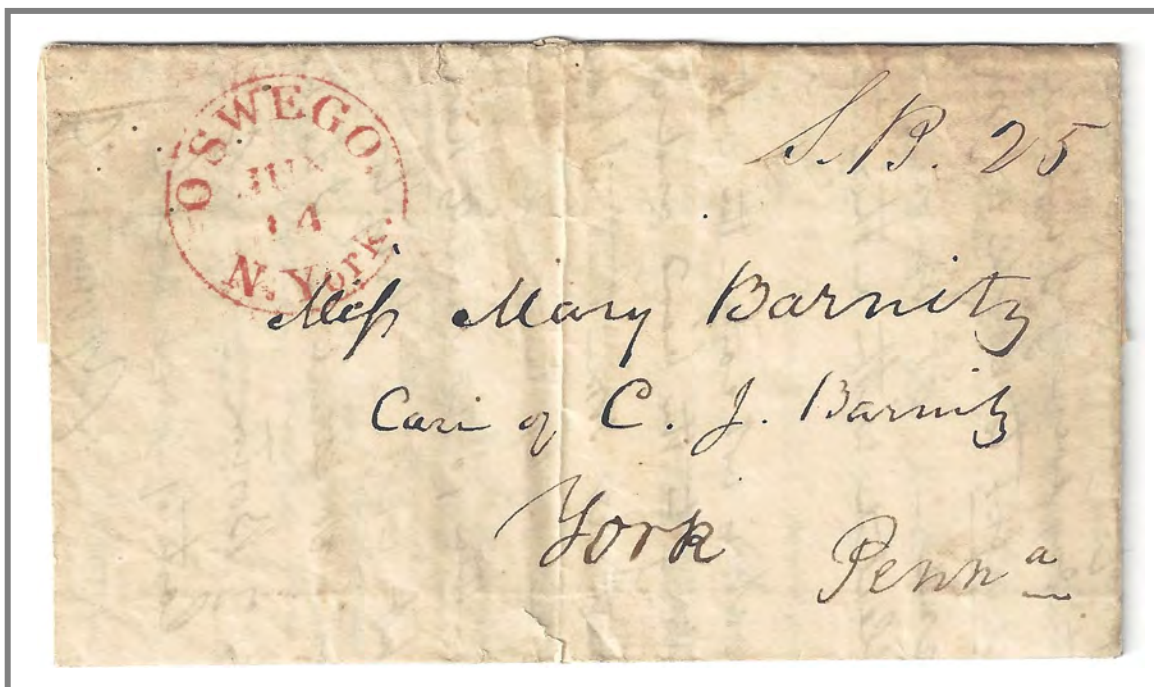 OSWEGO.
JUN
14
N. York.
S. B. 25
Miss Mary Barnitz
Care of C. J. Barnitz
York Penna